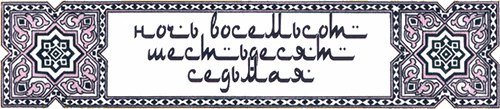 ночь восемьсот
шестьдесят
седьмая